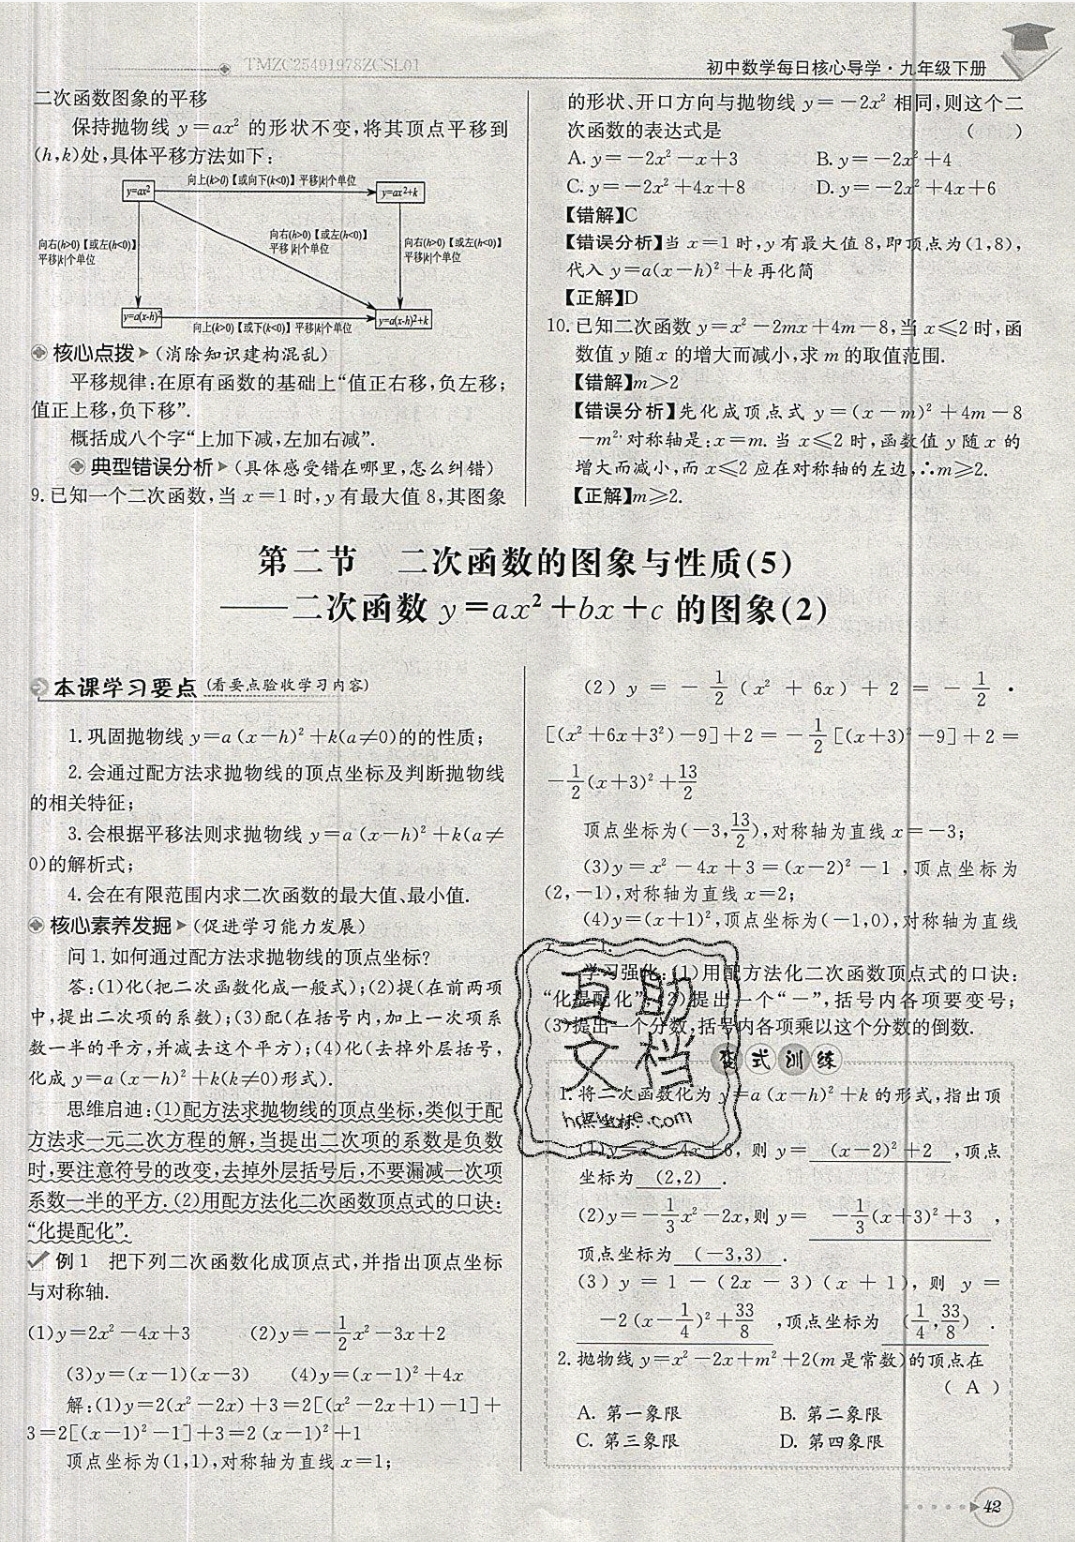 TMZC25491978ZCSL01
初中数学每日核心导学·九年级下册
二次函数图象的平移
保持抛物线 y=ax² 的形状不变,将其顶点平移到
(h,k)处,具体平移方法如下:
y=ax²
向上(k>0)【或向下(k<0)】平移|k|个单位
y=ax²+k
向右(h>0)【或左(h<0)】
平移|k|个单位
向右(h>0)【或左(h<0)】
平移|k|个单位
向右(h>0)【或左(h<0)】
平移|k|个单位
y=a(x-h)²
向上(k>0)【或下(k<0)】平移|k|个单位
y=a(x-h)²+k
核心点拨(消除知识建构混乱)
平移规律:在原有函数的基础上“值正右移,负左移;
值正上移,负下移”.
概括成八个字“上加下减,左加右减”.
典型错误分析(具体感受错在哪里,怎么纠错)
9.已知一个二次函数,当 x=1 时,y 有最大值 8,其图象
的形状、开口方向与抛物线 y=-2x² 相同,则这个二
次函数的表达式是 ( )
A. y=-2x²-x+3 B. y=-2x²+4
C. y=-2x²+4x+8 D. y=-2x²+4x+6
【错解】C
【错误分析】当 x=1 时,y 有最大值 8,即顶点为(1,8),
代入 y=a(x-h)²+k 再化简
【正解】D
10.已知二次函数 y=x²-2mx+4m-8,当 x≤2 时,函
数值 y 随 x 的增大而减小,求 m 的取值范围.
【错解】m>2
【错误分析】先化成顶点式 y=(x-m)²+4m-8
-m².对称轴是:x=m.当 x≤2 时,函数值 y 随 x 的
增大而减小,而 x≤2 应在对称轴的左边,∴m≥2.
【正解】m≥2.
第二节 二次函数的图象与性质(5)
——二次函数 y=ax²+bx+c 的图象(2)
本课学习要点(看要点验收学习内容)
1.巩固抛物线 y=a(x-h)²+k(a≠0)的的性质;
2.会通过配方法求抛物线的顶点坐标及判断抛物线
的相关特征;
3.会根据平移法则求抛物线 y=a(x-h)²+k(a≠
0)的解析式;
4.会在有限范围内求二次函数的最大值、最小值.
核心素养发掘(促进学习能力发展)
问 1.如何通过配方法求抛物线的顶点坐标?
答:(1)化(把二次函数化成一般式);(2)提(在前两项
中,提出二次项的系数);(3)配(在括号内,加上一次项系
数一半的平方,并减去这个平方);(4)化(去掉外层括号,
化成 y=a(x-h)²+k(k≠0)形式).
思维启迪:(1)配方法求抛物线的顶点坐标,类似于配
方法求一元二次方程的解,当提出二次项的系数是负数
时,要注意符号的改变,去掉外层括号后,不要漏减一次项
系数一半的平方.(2)用配方法化二次函数顶点式的口诀:
“化提配化”.
例 1 把下列二次函数化成顶点式,并指出顶点坐标
与对称轴.
(1)y=2x²-4x+3 (2)y=-1/2x²-3x+2
(3)y=(x-1)(x-3) (4)y=(x-1)²+4x
解:(1)y=2(x²-2x)+3=2[(x²-2x+1)-1]+
3=2[(x-1)²-1]+3=2(x-1)²+1
顶点坐标为(1,1),对称轴为直线 x=1;
(2) y = -1/2(x²+6x)+2 = -1/2·
[(x²+6x+3²)-9]+2=-1/2[(x+3)²-9]+2=
-1/2(x+3)²+13/2
顶点坐标为(-3,13/2),对称轴为直线 x=-3;
(3)y=x²-4x+3=(x-2)²-1,顶点坐标为
(2,-1),对称轴为直线 x=2;
(4)y=(x+1)²,顶点坐标为(-1,0),对称轴为直线
x=-1.
学习强化:(1)用配方法化二次函数顶点式的口诀:
“化提配化”;(2)提出一个“-”,括号内各项要变号;
(3)提出一个分数,括号内各项乘以这个分数的倒数.
变式训练
1.将二次函数化为 y=a(x-h)²+k 的形式,指出顶
点坐标.
(1)y=x²-4x+6,则 y=(x-2)²+2,顶点
坐标为 (2,2).
(2)y=-1/3x²-2x,则 y= -1/3(x+3)²+3,
顶点坐标为 (-3,3).
(3) y = 1-(2x-3)(x+1),则 y =
-2(x-1/4)²+33/8,顶点坐标为 (1/4,33/8).
2.抛物线 y=x²-2x+m²+2(m 是常数)的顶点在
( A )
A. 第一象限 B. 第二象限
C. 第三象限 D. 第四象限
互助
文档
42